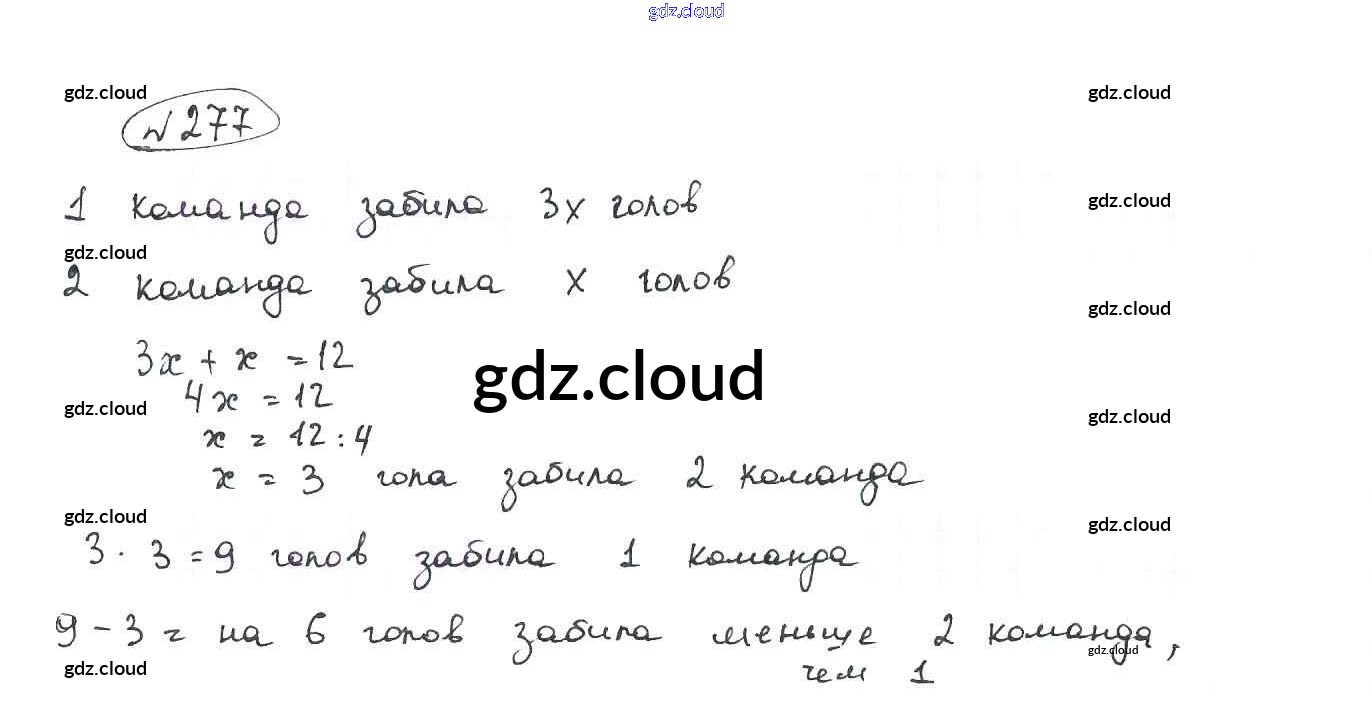 gdz.cloud
gdz.cloud gdz.cloud
№ 277
1 команда забила 3х голов gdz.cloud
gdz.cloud
2 команда забила х голов
gdz.cloud
3х + х = 12
gdz.cloud
4х = 12
gdz.cloud gdz.cloud
х = 12 : 4
х = 3 гола забила 2 команда
gdz.cloud gdz.cloud
3 · 3 = 9 голов забила 1 команда
9 - 3 = на 6 голов забила меньше 2 команда,
gdz.cloud
gdz.cloud чем 1